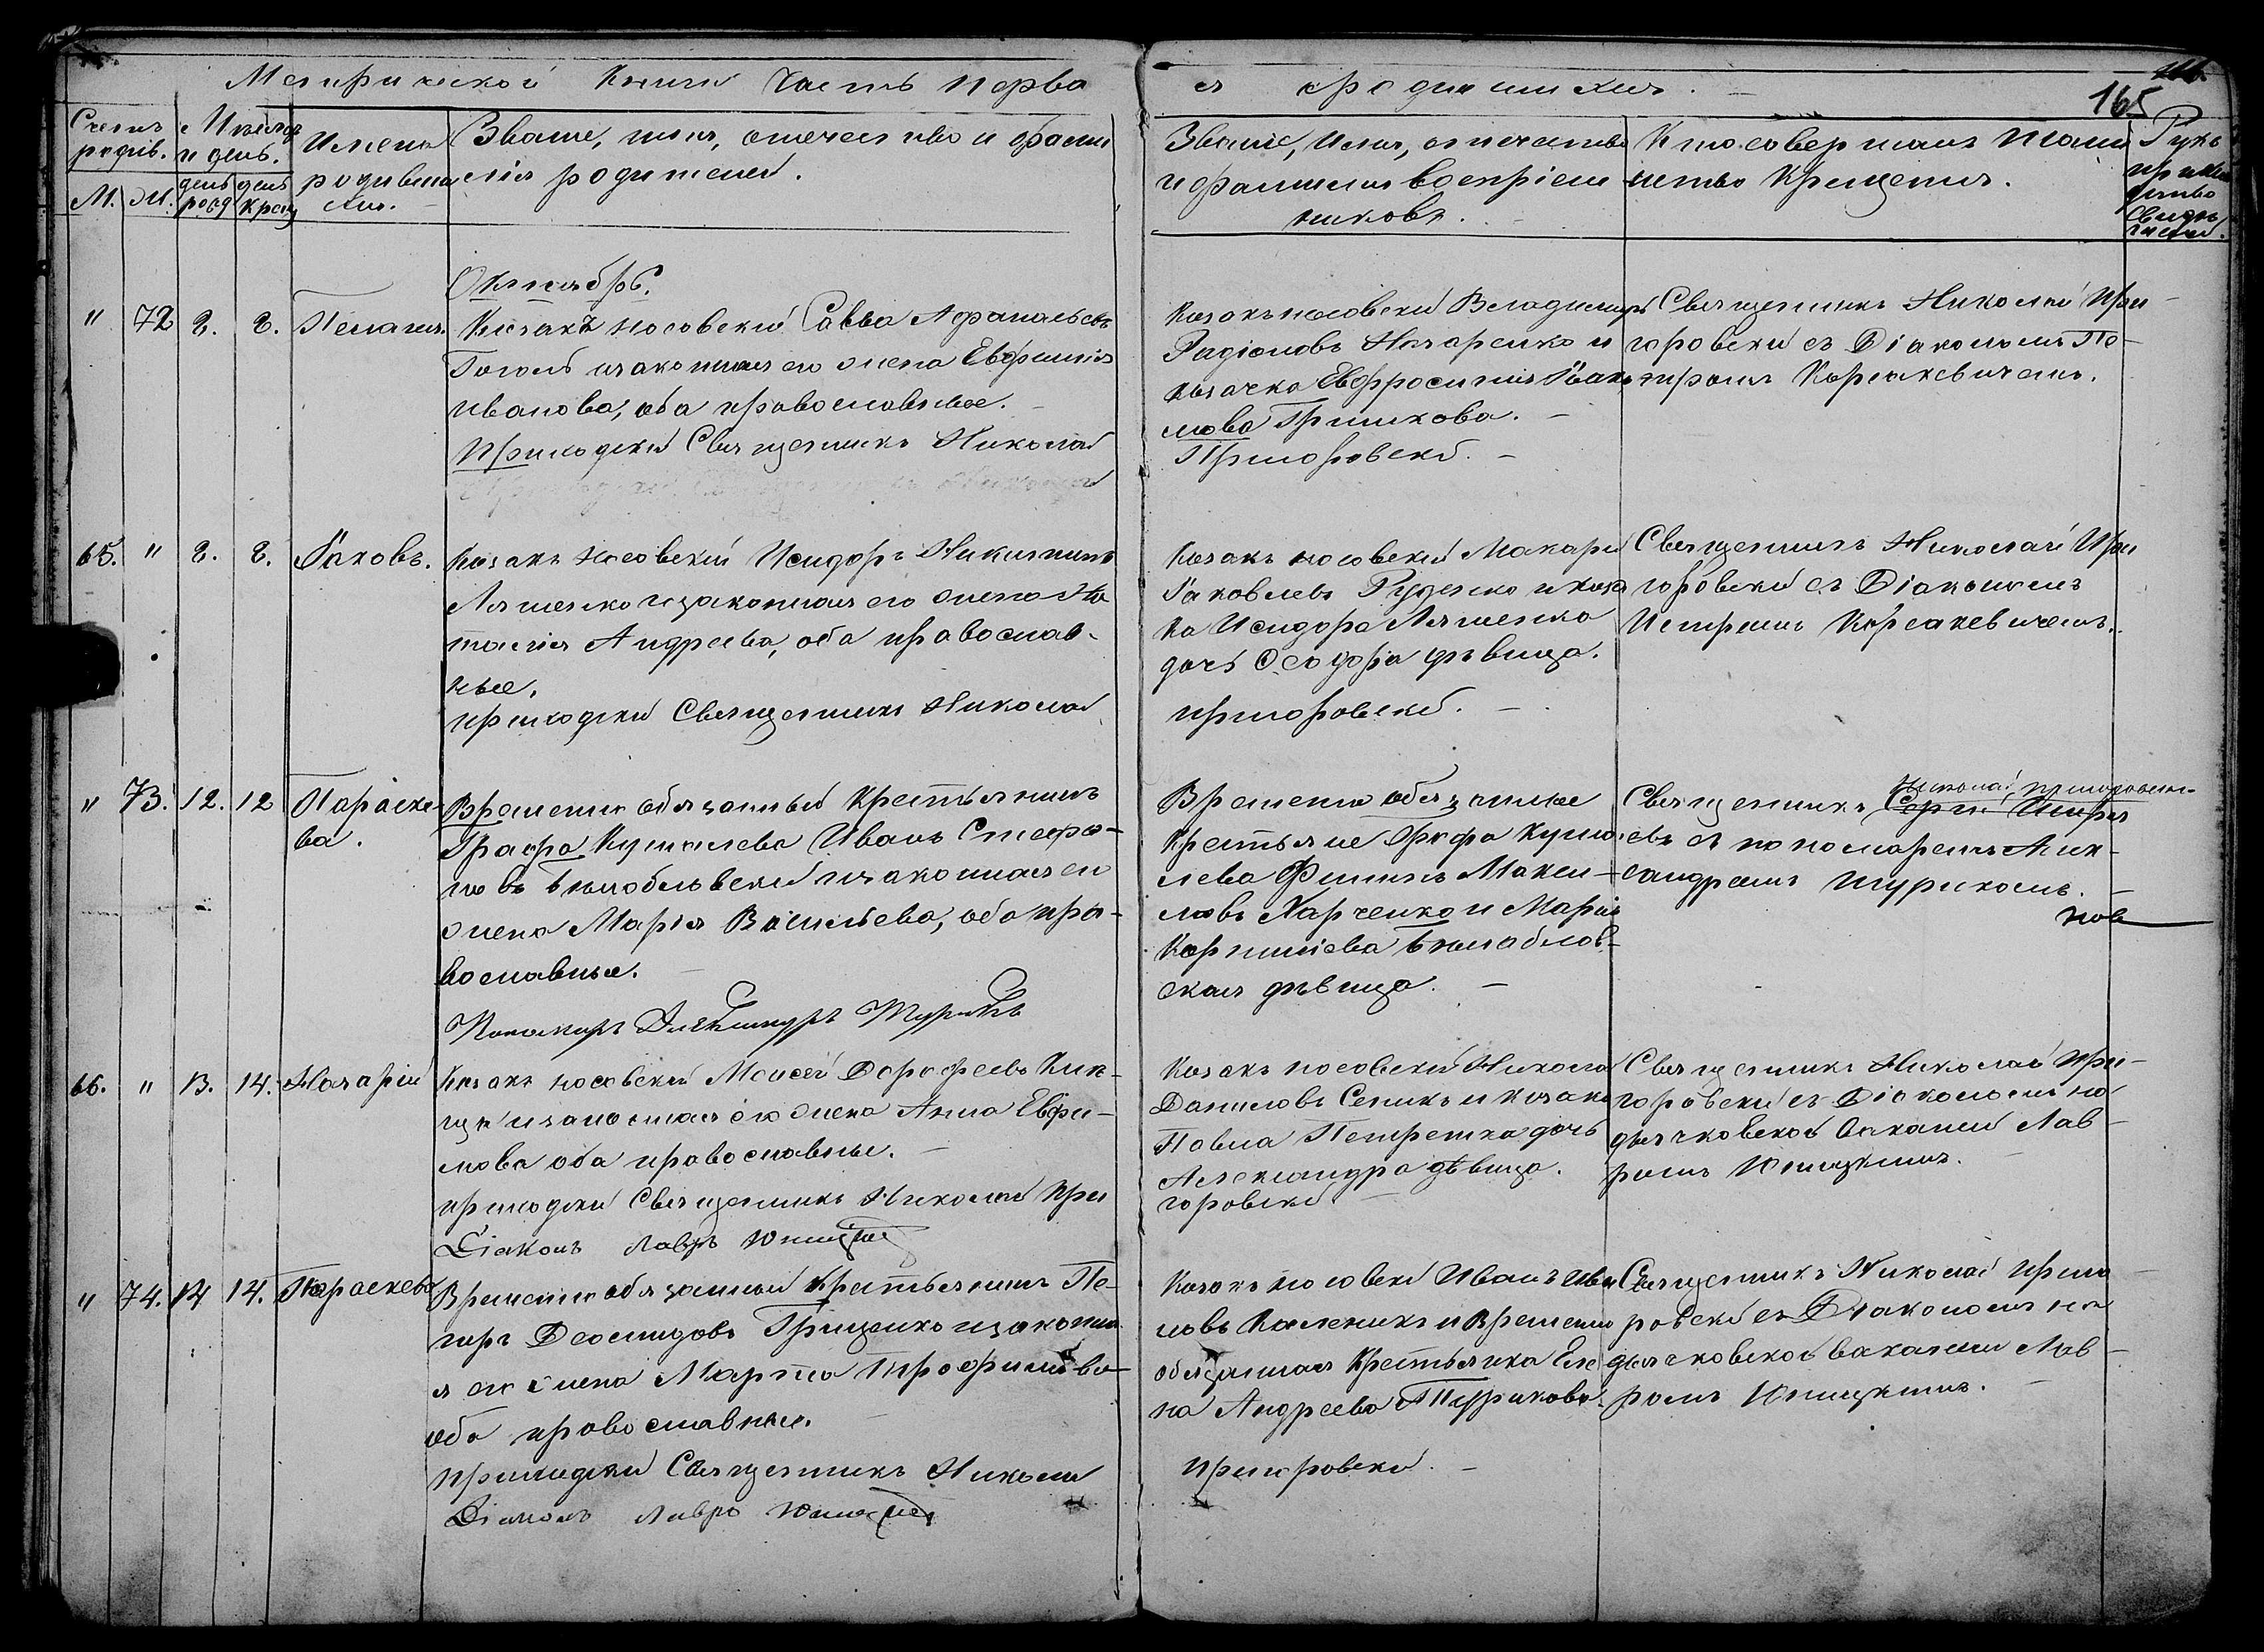 Метрической Книги Часть перва
я о родившихся.
165
Счетъ родив.
М. Ж.
Мѣсяцъ и день.
день рожд
день крещ
Имена родивши
хся.
Званіе, имя, отечество и фами
лія родителей.
Званіе, Имя, отечество
и фамилія воспріем
никовъ.
Кто совершалъ таин
ство Крещенія.
Руко
прикла
дство
свидѣ
телей.
Октябрь.
" 72 2. 2. Пелагія.
Козакъ носовскій Савва Афанасьевъ
Гоголь и законная его жена Евфимія
Иванова, оба православные.
Приходскій Священникъ Николай
Козакъ носовскій Владимиръ
Радіоновъ Назаренко и
козачка Евфросинія Іаки
мова Гришкова.
Пригоровскій.
Священникъ Николай При
горовскій съ Діакономъ Пе
тромъ Корсакевичемъ.
65. " 2. 2. Іаковъ.
Козакъ носовскій Исидоръ Никитинъ
Ляшенко и законная его жена На
талія Андреева, оба православ
ные.
приходскій Священникъ Николай
Козакъ носовскій Макарій
Іаковлевъ Руденко и коза
ка Исидора Ляшенка
дочь Ѳеодора дѣвица.
пригоровскій.
Священникъ Николай При
горовскій съ Діакономъ
Петромъ Корсакевичемъ.
" 73. 12. 12 Параске
ва.
Временно обязанный Крестьянинъ
Графа Кушелева Иванъ Стефа
новъ и законная его
жена Марія Васильева, оба пра
вославные.
Пономарь Александръ Шурикъ
Временно обязанные
Крестьяне Графа Куше
лева Филипъ Макси
мовъ Харченко и Марія
Корнилиева
ская дѣвица.
Николай, пригоровскій
Священникъ Сергій Петро
евъ съ пономаремъ Алек
сандромъ Шурикомъ.
нов
66. " 13. 14. Назарій
Козакъ носовскій Моисей Дорофеевъ
и законная его жена Анна Евфи
мова оба православные.
приходскій Священникъ Николай При
Діаконъ Лавръ Юницкій
Козакъ носовскій Николай
Даниловъ Сеникъ и козака
Павла Петренка дочь
Александра дѣвица.
горовскій
Священникъ Николай При
горовскій съ Діакономъ на
дьячковской вакансіи Лав
ромъ Юницкимъ.
" 74. 14 14. Параскева
Временно обязанный Крестьянинъ Пе
тръ Деомидовъ Грищенко и законна
я его жена Марта Трофимова
оба православные.
приходскій Священникъ Николай
Діаконъ Лавръ Юницкій
Козакъ носовскій Иванъ Ива
новъ Каленикъ и Временно
обязанная Крестьянка Еле
на Андреева
Пригоровскій.
Священникъ Николай Приго
ровскій съ Діакономъ на
дьячковской вакансіи Лав
ромъ Юницкимъ.